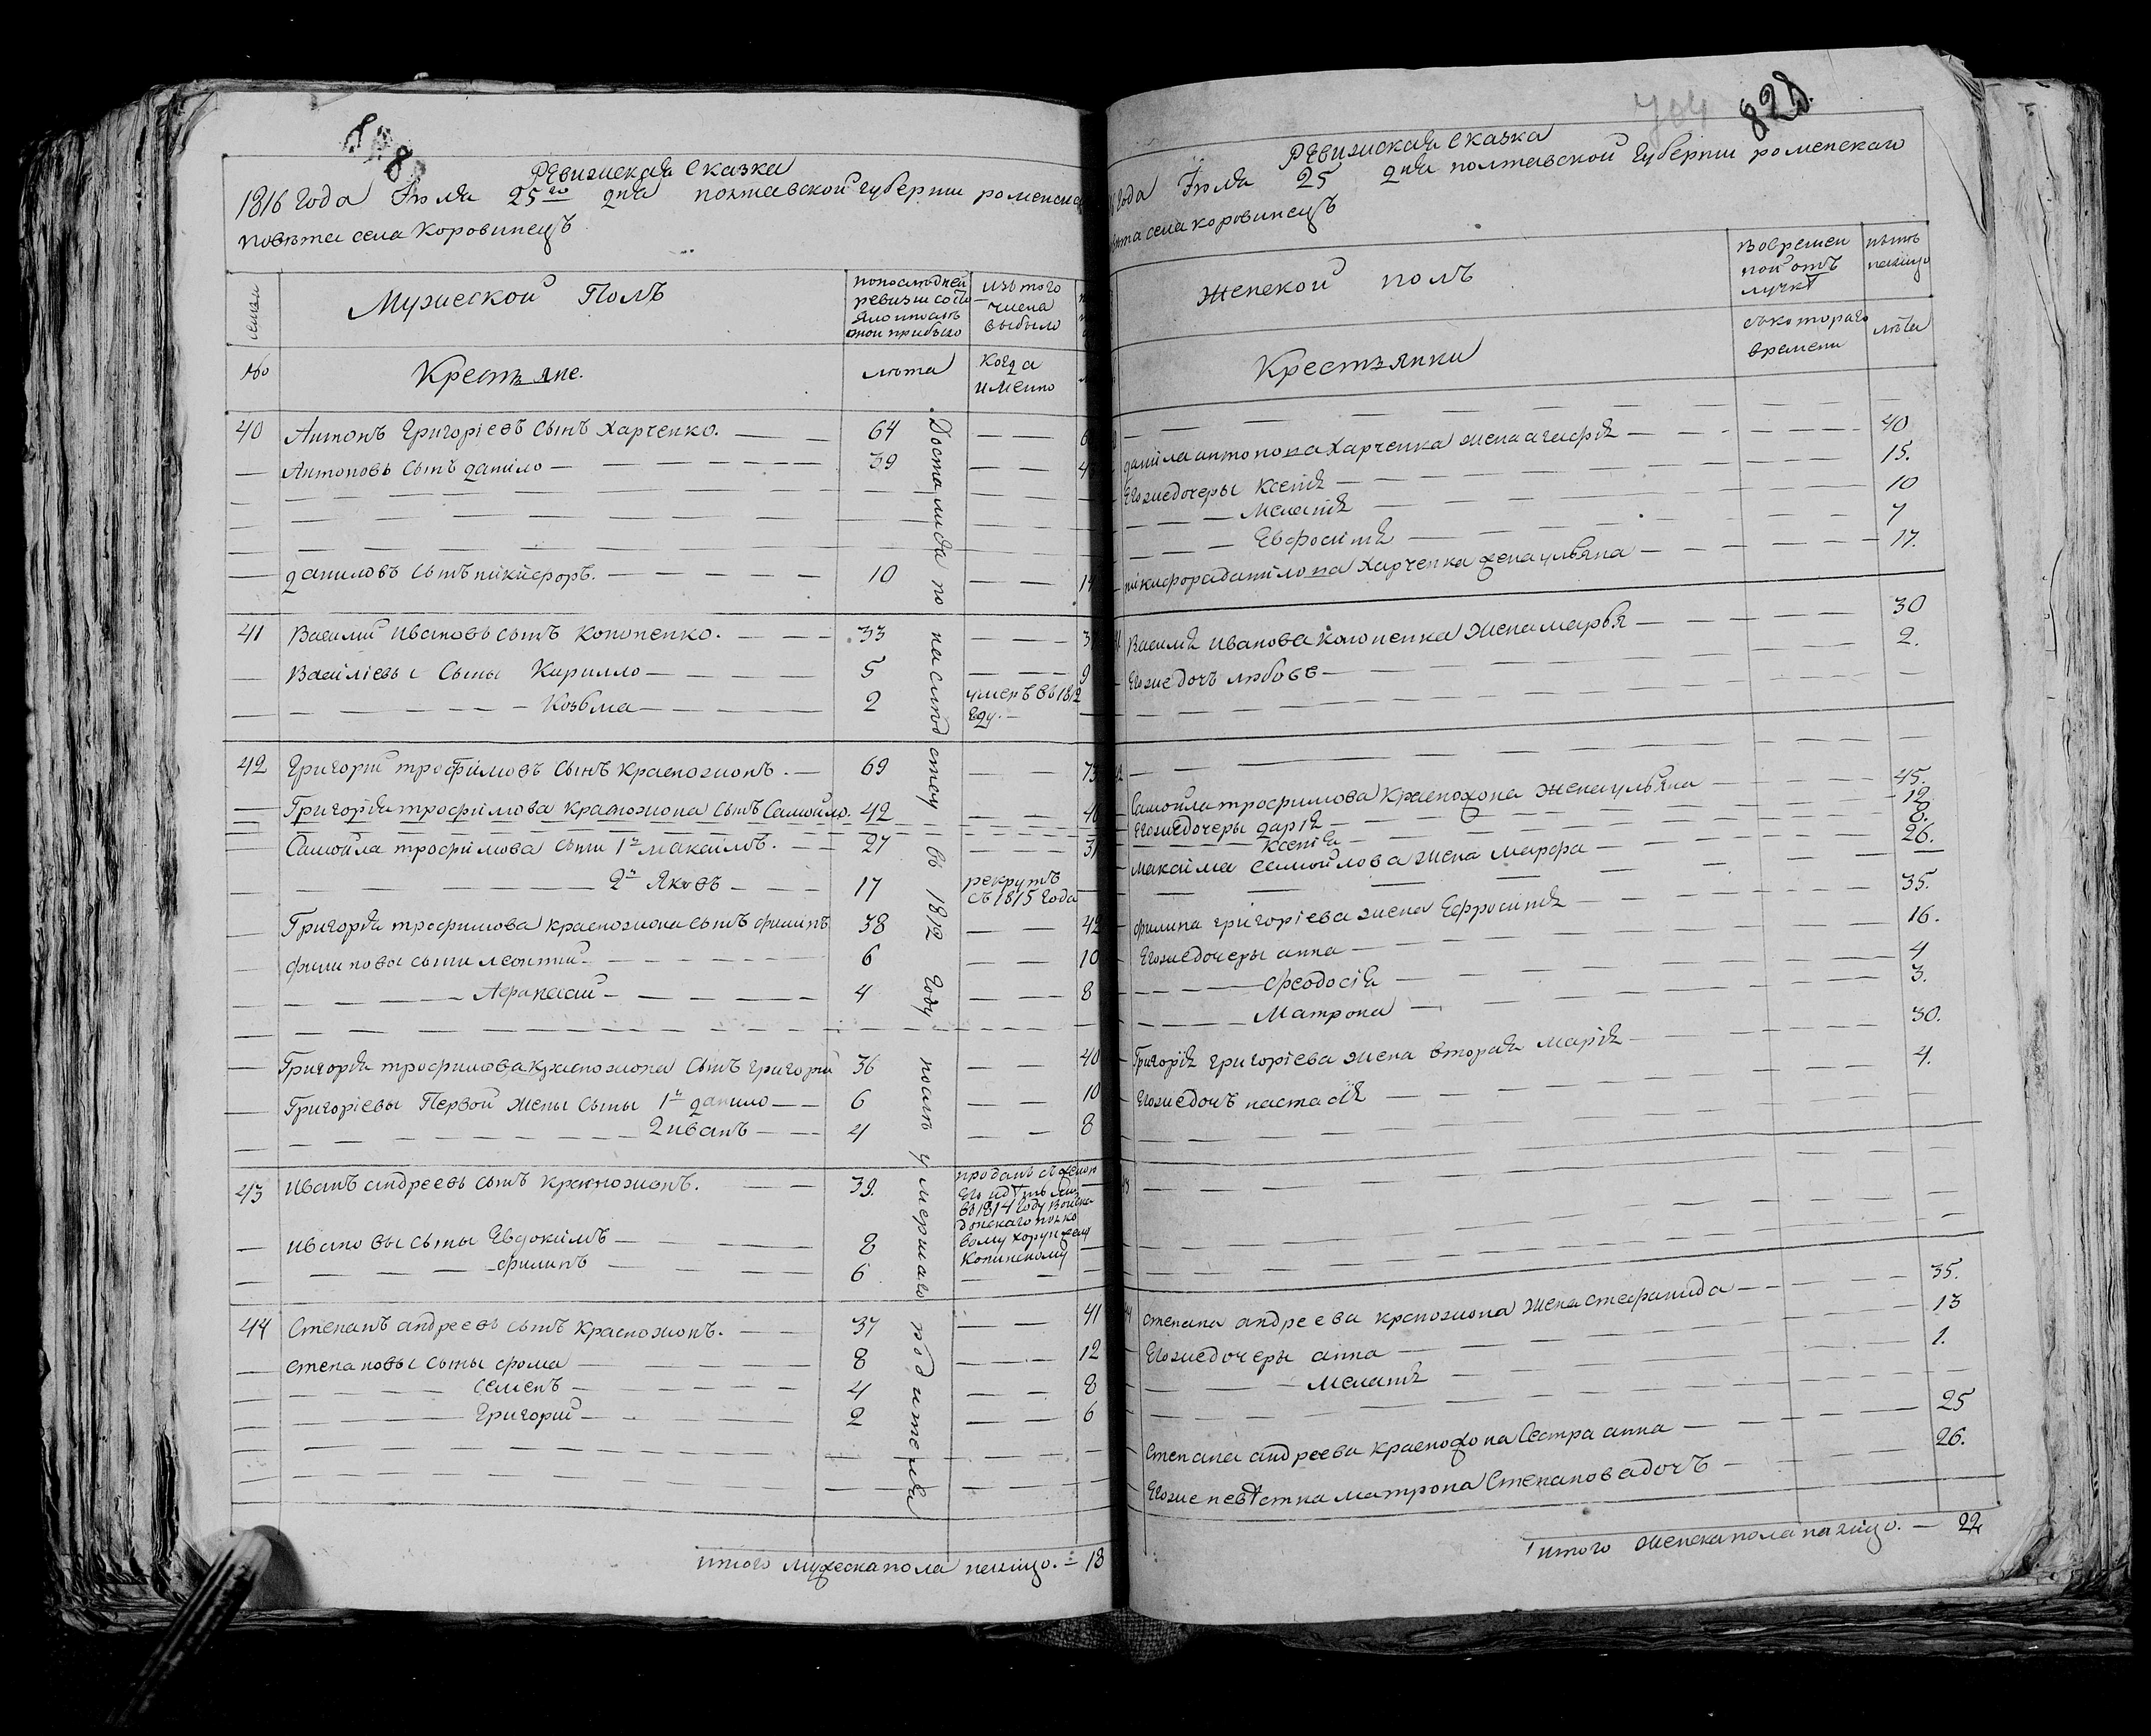 Ревизская сказка
1816 года Июля 25го дня полтавской губернии роменска
повѣта села Коровинецъ
семьи
Мужеской Полъ
попослѣдней
ревизии состо
яло ипослѣ
оной прибыло
изътого
числа
выбыло
№
Крестьяне.
лѣта
когда
именно
40 Антонъ Григоріевъ сынъ Харченко. 64
Антоновъ сынъ данило 39
даниловъ сынъ никифоръ. 10
41 Василий Ивановъ сынъ Кононенко. 33
Василіевы Сыны Кирилло 5 9
Козьма 2 умеръ въ 1812
году.
42 Григорий трофимовъ сынъ Красножонъ. 69 73
Григорія трофимова красножона сынъ Самойло. 42
Самойла трофимова сыны 1й максимъ. 27
2й Яковъ 17 рекрутъ
съ 1815 года
Григорія трофимова красножона сынъ филипъ 38 42
филиповы сыны леонтий 6 10
Афанасий 4 8
Григорія трофимова красножона сынъ григорий 36 40
Григоріевы Первой жены сыны 1й данило 6 10
2 иванъ 4 8
43 Иванъ андреевъ сынъ красножонъ. 39. проданъ съ женою
его идѣтьми
въ 1814 году войска
донскаго полко
вому хорунжему
Копинскому
Ивановы сыны Евдокимъ 8
филипъ 6
44 Степанъ андреевъ сынъ красножонъ. 37 41
степановы сыны фома 8 12
семенъ 4 8
Григорий 2 6
Досталися по наслѣдству въ 1812 году послѣ умершаго родителя
итого мужеска пола налицо. 18
704 828.
Ревизская сказка
года Июля 25 дня полтавской Губернии роменскаго
вѣта села коровинецъ
Женской полъ
вовремен
ной отъ
лучкѣ
нынѣ
налицо
съкотораго
времени
лѣта
Крестьянки
данила антонова Харченка жена агафия 40
Егожедочеры Ксенія 15.
Меланія 10
Евфросинія 7
никифора данилова Харченка жена ульяна 17.
Василія Иванова кононенка жена марья 30
Егоже дочъ любовь 2.
Самойла трофимова красножона жена ульяна 45.
Егожедочеры дарія 12
Ксенія 8.
максима самойлова жена марфа 26.
филипа григоріева жена Ефросинія 35.
Егожедочеры анна 16.
феодосія 4
Матрона 3.
Григорія григоріева жена вторая марія 30.
Егожедочъ настасія 4.
44 степана андреева красножона жена стефанида 35.
Егожедочеры анна 13
меланія 1.
степана андреева красножона Сестра анна 25
Егоже невѣстка матрона Степанова дочъ 26.
итого женска пола налицо. 22